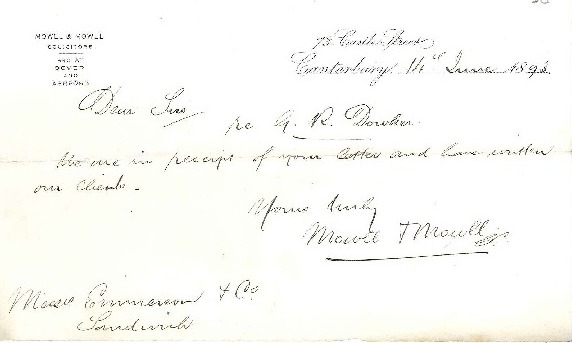 MOWLL & MOWLL
SOLICITORS
AND AT
DOVER
AND
ASHFORD
Castle Street
Canterbury, 14th June 189
Dear Sirs
re G. R.
We are in receipt of your letter and have written
our clients.
Yours truly
Mowll & Mowll
Messrs Emmerson & Co
Sandwich